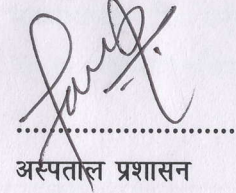 अस्पताल प्रशासन